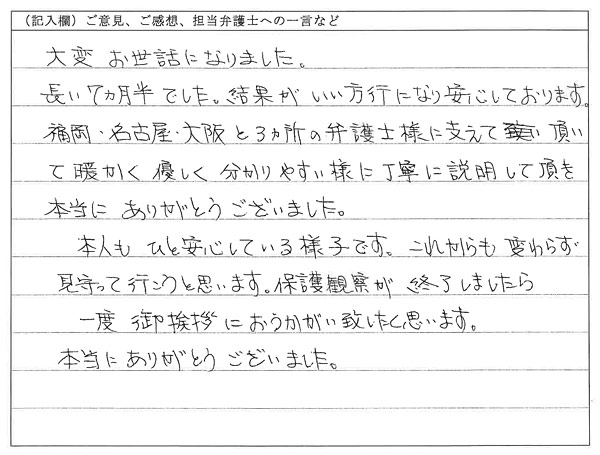 （記入欄）ご意見、ご感想、担当弁護士への一言など
大変 お世話になりました。
長い7ヵ月半でした。結果が いい方行になり安心しております。
福岡・名古屋・大阪と3ヵ所の弁護士様に支えて 頂い
て 暖かく 優しく 分かりやすい様に丁寧に説明して頂き
本当に ありがとう ございました。
本人も ひと安心している様子です。これからも 変わらず
見守って行こうと思います。保護観察が 終了しましたら
一度 御挨拶におうかがい致したく思います。
本当に ありがとう ございました。